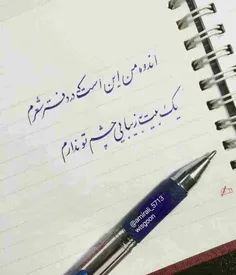 اندوه من این است که در دفتر شعرم
یک بیت به زیبایی چشم تو ندارم
@amirali_5713
wisgoon